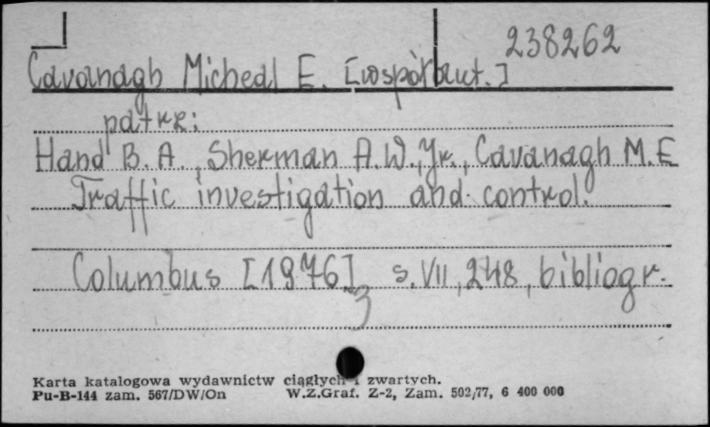 238262
Cavanagh Micheal E. [współaut.]
patrz:
Hand B. A., Sherman A.W., Jr., Cavanagh M.E
Traffic investigation and control.
Columbus [1976] s. VII, 248, bibliogr.
3
Karta katalogowa wydawnictw ciągłych i zwartych.
Pu-B-144 zam. 567/DW/On W.Z.Graf. Z-2, Zam. 502/77, 6 400 000